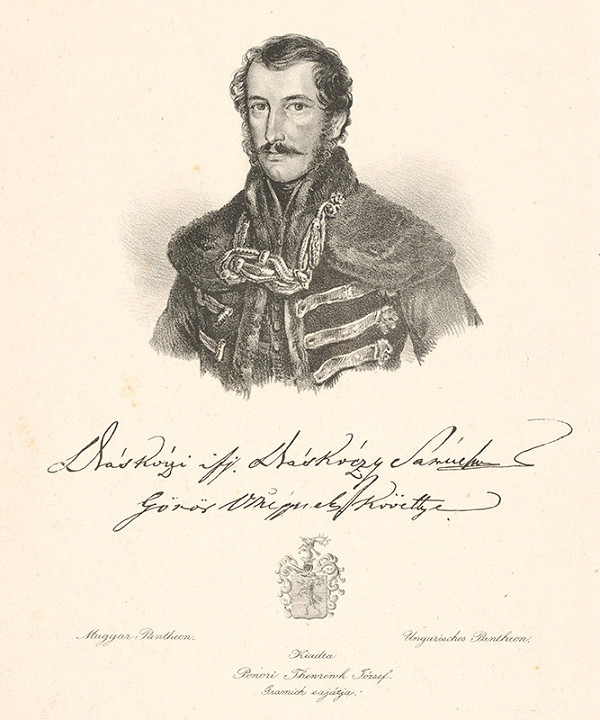 Dráskóczi ifj. Dráskóczy Sámuel
Gömör Követtye
Magyar Pantheon.
Ungarisches Pantheon.
Kiadta
Ponori Thewrewk József.
Tramich sajátja.